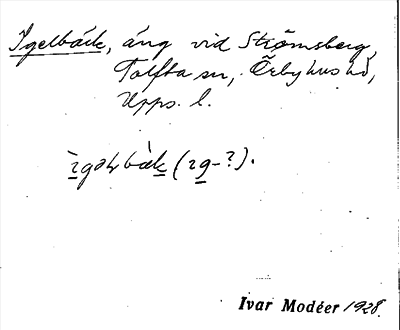 Igelbäck, äng vid Strömsberg,
Tolfta sn, Örbyhus hd,
Upps. l.
ìgəlbäk (ıg-?).
Ivar Modéer 1928.